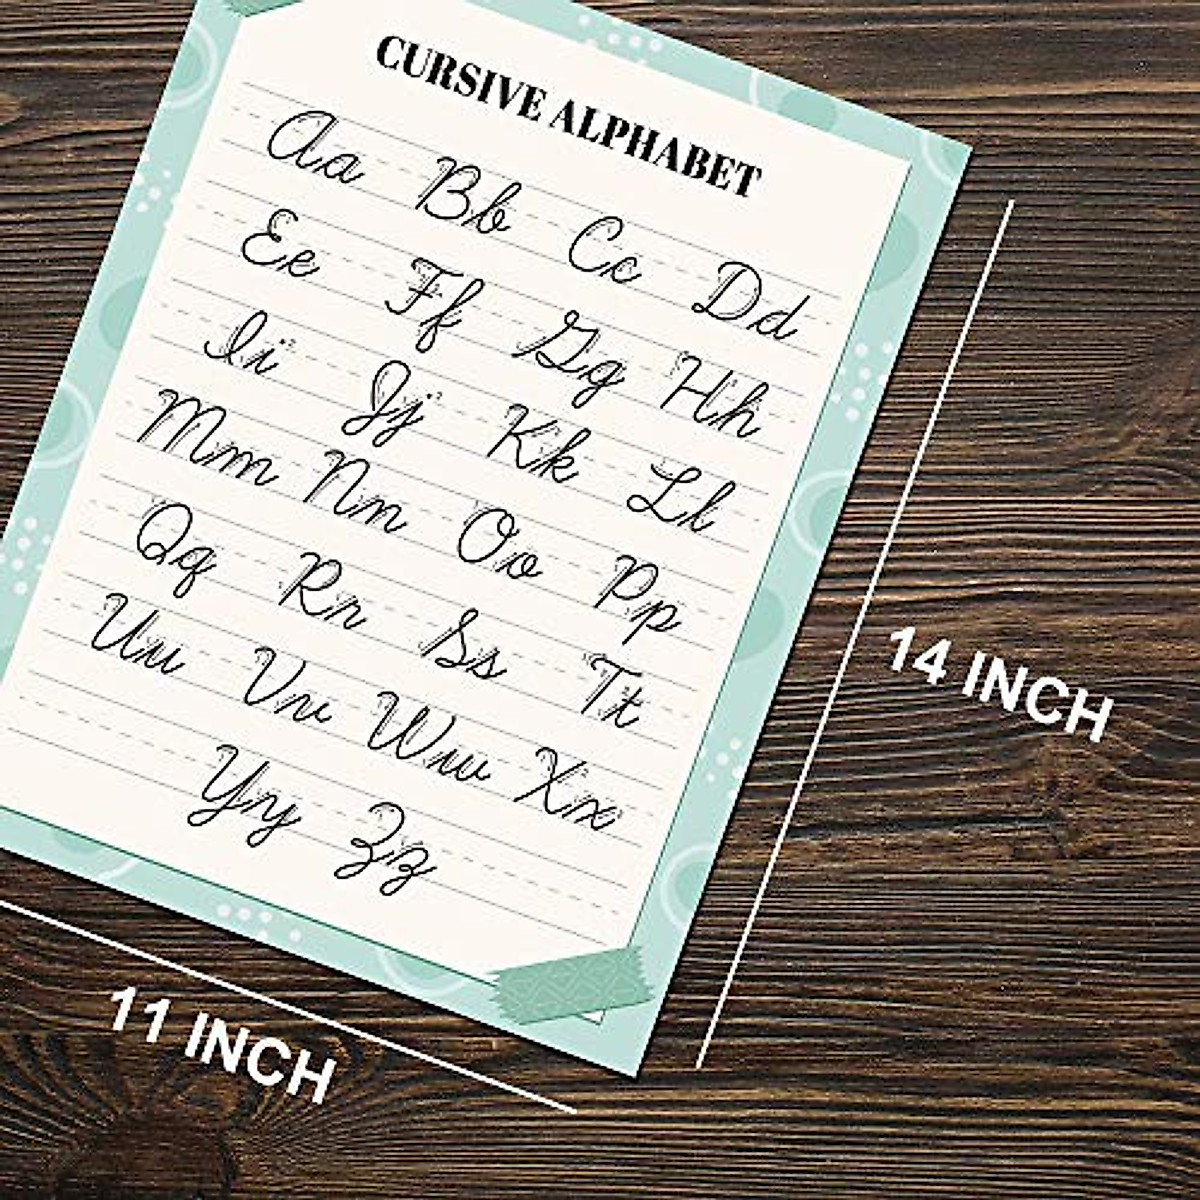 CURSIVE ALPHABET
Aa Bb Cc Dd
Ee Ff Gg Hh
Ii Jj Kk Ll
Mm Nn Oo Pp
Qq Rr Ss Tt
Uu Vv Ww Xx
Yy Zz
14 INCH
11 INCH